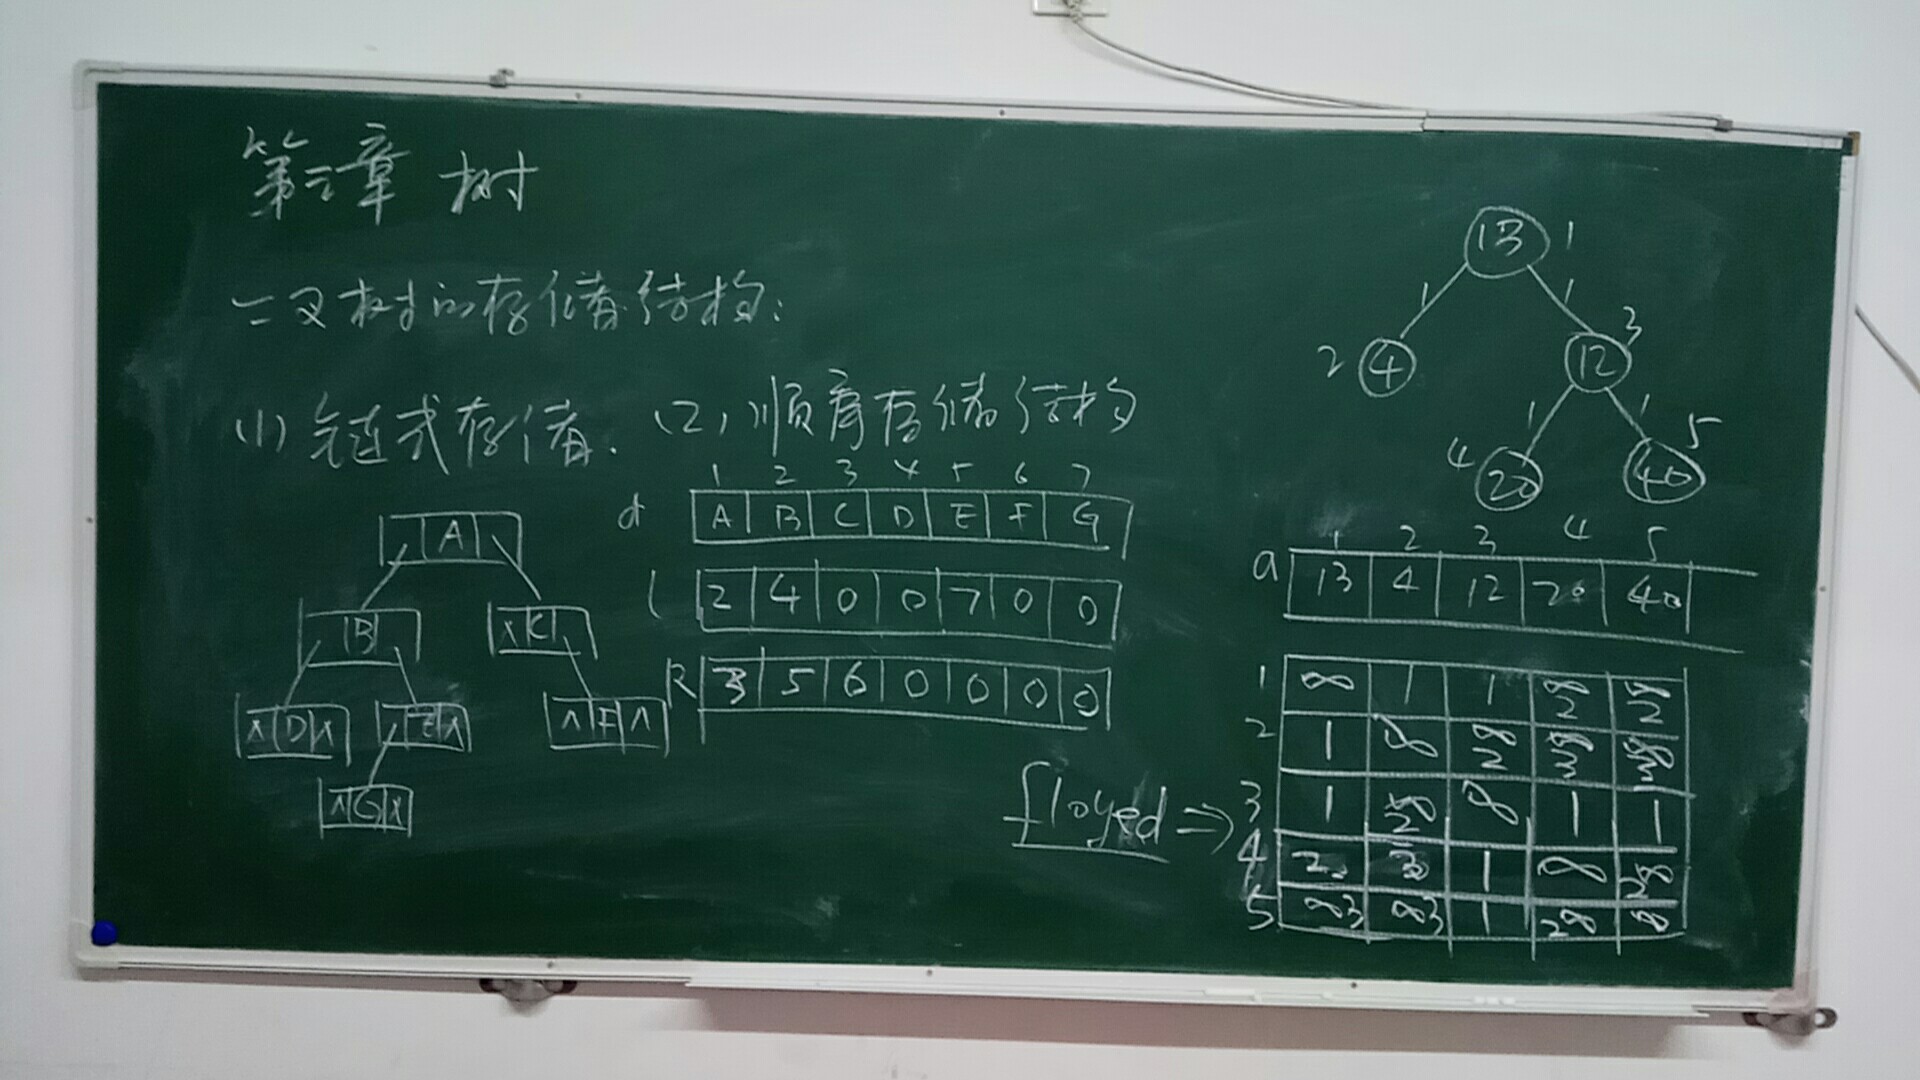 第三章 树
二叉树的存储结构:
(1) 链式存储. (2) 顺序存储结构
A
B ∧ C
∧ D ∧ E ∧ ∧ F ∧
∧ G ∧
1 2 3 4 5 6 7
d A B C D E F G
l 2 4 0 0 7 0 0
R 3 5 6 0 0 0 0
13 1
1 1
2 4 12 3
1 1
4 20 40 5
1 2 3 4 5
a 13 4 12 20 40
floyed ⇒
1 ∞ 1 1 ∞ 2 ∞ 2
2 1 ∞ ∞ 2 ∞ 3 ∞ 3
3 1 ∞ 2 ∞ 1 1
4 2 3 1 ∞ ∞ 2
5 ∞ 3 ∞ 3 1 2 ∞ ∞